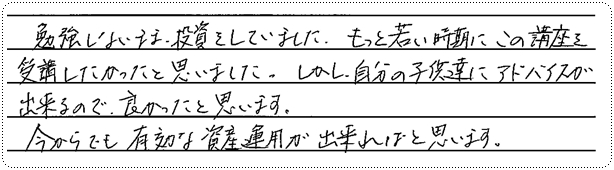 勉強しないまま、投資をしていました。もっと若い時期にこの講座を
受講したかったと思いました。しかし、自分の子供達にアドバイスが
出来るので、良かったと思います。
今からでも有効な資産運用が出来ればと思います。